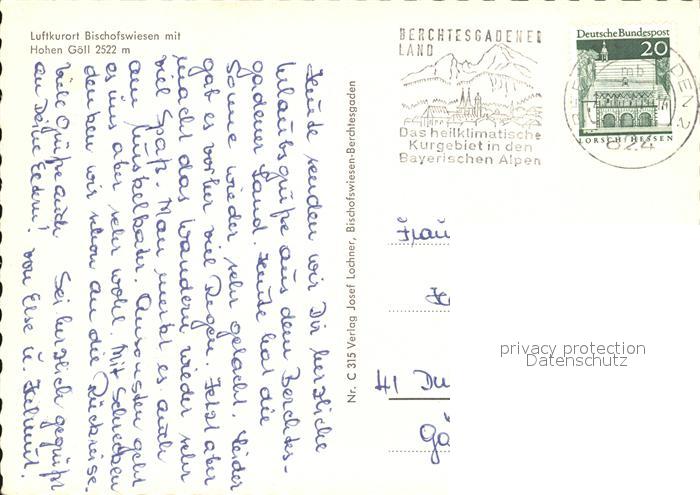 Luftkurort Bischofswiesen mit
Hohen Göll 2522 m
Heute senden wir Dir herzliche
Urlaubsgrüße aus dem Berchtes-
gadener Land. Heute hat die
Sonne wieder sehr gelacht. Leider
gab es vorher viel Regen. Jetzt aber
macht das Wandern wieder sehr
viel Spaß. Man merkt es auch
am Muskelkater. Ansonsten geht
es uns aber sehr wohl. Mit Schrecken
denken wir schon an die Rückreise.
Viele Grüße auch Sei herzlich gegrüßt
an Deine Eltern! von Else u. Helmut.
Nr. C 315 Verlag Josef Lochner, Bischofswiesen-Berchtesgaden
BERCHTESGADENER
LAND
Das heilklimatische
Kurgebiet in den
Bayerischen Alpen
Deutsche Bundespost
20
LORSCH/HESSEN
Frau
41 Du
privacy protection
Datenschutz